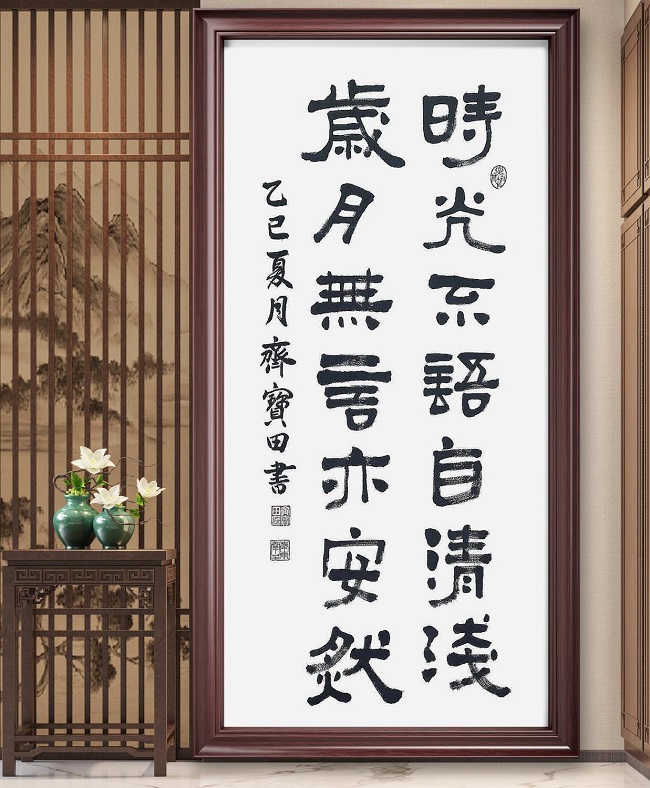 時光不語自清淺
歲月無言亦安然
乙巳夏月齊寶田書